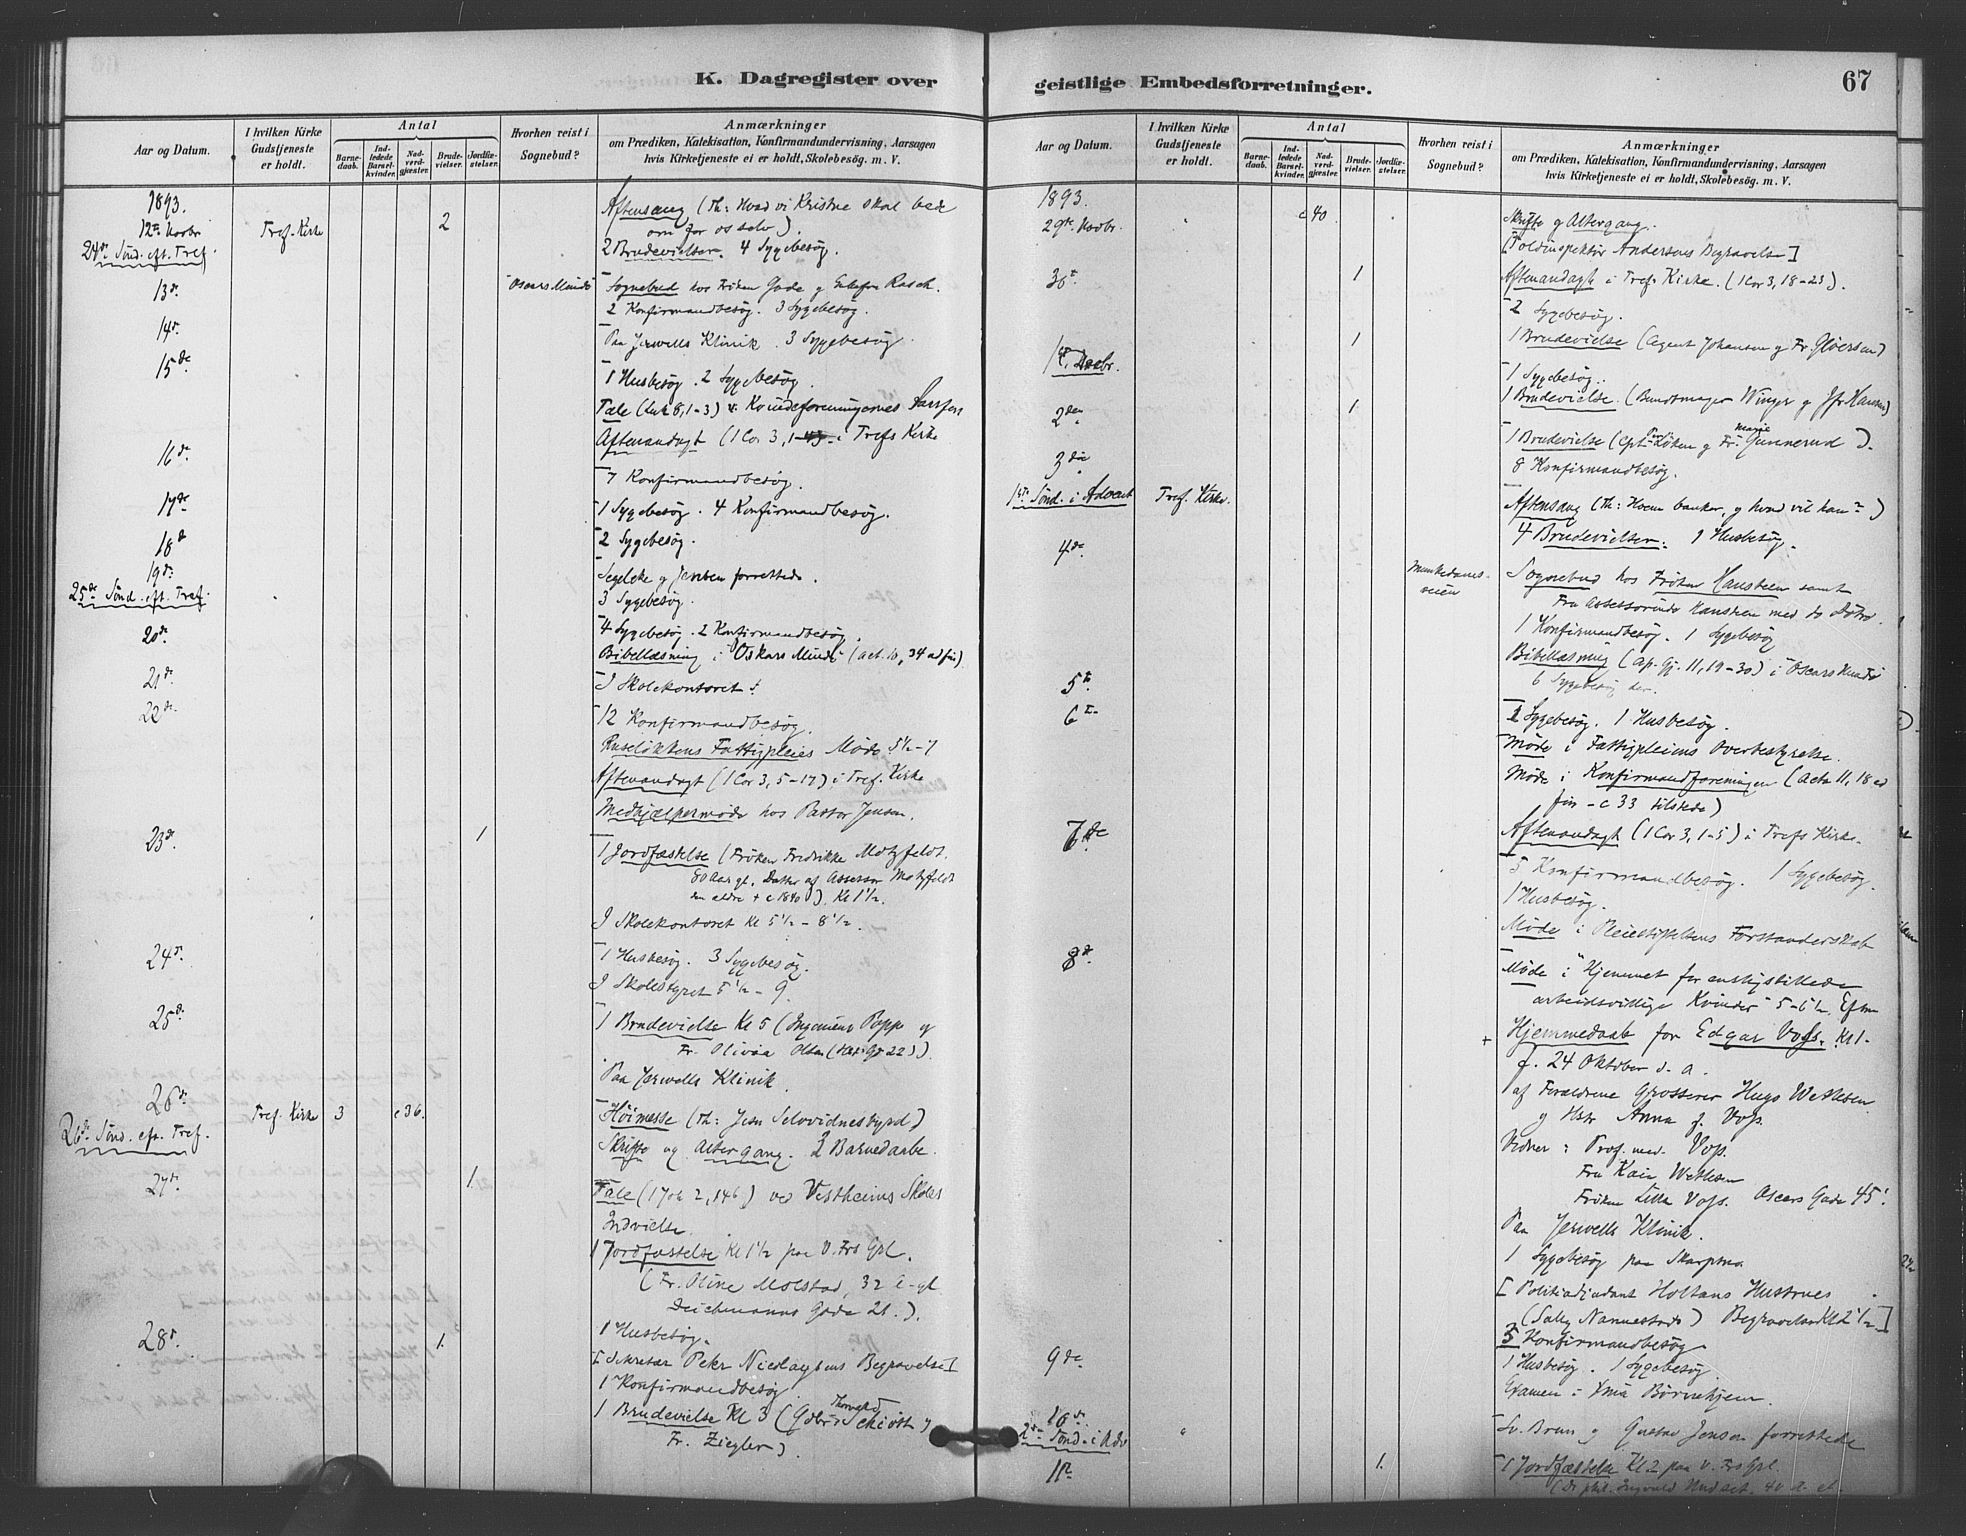 K. Dagregister over
Aar og Datum.
I hvilken Kirke Gudstjeneste er holdt.
Antal
Barnedaab.
Indledede Barselkvinder.
Nadverdgjæster.
Brudevielser.
Jordfæstelser.
Hvorhen reist i Sognebud?
Anmærkninger
om Prædiken, Katekisation, Konfirmandundervisning, Aarsagen
hvis Kirketjeneste ei er holdt, Skolebesøg. m. V.
1893.
12te Novbr. Tref. Kirke 2 Aftensang (Th: Hvad vi Kristne skal bede
24de Sønd. eft. Tref. om for os selv).
2 Brudevielser. 4 Sygebesøg.
13de Oscars Minde Sognebud hos Frøken Gade og Enkefru Rasch.
2 Konfirmandbesøg. 3 Sygebesøg.
14de Paa Jervells Klinik. 3 Sygebesøg.
15de 1 Husbesøg. 2 Sygebesøg.
Tale (Luk 8, 1-3) v. Kvindeforeningernes
Aftenandagt (1 Cor 3, i Trefs Kirke
16de 7 Konfirmandbesøg.
17de 1 Sygebesøg. 4 Konfirmandbesøg.
18de 2 Sygebesøg.
19de Segelcke og Jensen forrettede.
25de Sønd. eft. Tref. 3 Sygebesøg.
20de 4 Sygebesøg. 2 Konfirmandbesøg.
Bibellæsning i Oskars Minde (Act. 10, 34 ad fin).
21de I Skolekontoret.
22de 12 Konfirmandbesøg.
Ruseløkkens Fattigpleies Møde 5½-7
Aftenandagt (1 Cor 3, 5-17) i Tref. Kirke
Medhjælpermøde hos Pastor Jensen.
23de 1 1 Jordfæstelse (Frøken Fredrikke Motzfeldt.
80 Aar gl. Datter af Assessor Motzfeldt
den ældre + c 1840). Kl 1½.
I Skolekontoret Kl 5½ - 8½.
24de 1 Husbesøg. 3 Sygebesøg.
I Skolestyret 5½ - 9.
25de 1 Brudevielse Kl 5 (Ingeniør Popp og
Fr. Olivia Olsen
Paa Jervells Klinik.
26de Tref. Kirke 3 c 36. Høimesse (Th: Jesu Selvvidnesbyrd)
26de Sønd. eft. Tref. Skrifte og Altergang. 3 Barnedaabe.
27de 1. Tale ved Vestheims Skoles
Indvielse.
1 Jordfæstelse Kl 1½ paa V. Frs Gpl.
(Fr. Oline Molstad, 32 A. gl
Deichmanns Gade 21.).
28de 1. 1 Husbesøg.
[Sekretær Peter Nicolaysens Begravelse]
1 Konfirmandbesøg.
Thorvald
1 Brudevielse Kl 3 Schiøtt og
Fr. Ziegler)
geistlige Embedsforretninger.
67
Aar og Datum.
I hvilken Kirke Gudstjeneste er holdt.
Antal
Barnedaab.
Indledede Barselkvinder.
Nadverdgjæster.
Brudevielser.
Jordfæstelser.
Hvorhen reist i Sognebud?
Anmærkninger
om Prædiken, Katekisation, Konfirmandundervisning, Aarsagen
hvis Kirketjeneste ei er holdt, Skolebesøg. m. V.
1893.
29de Novbr. " c 40 Skrifte og Altergang.
[Toldinspektør Andersens Begravelse]
30te 1 Aftenandagt i Trefs Kirke. (1 Cor 3, 18-23).
2 Sygebesøg.
1 1 Brudevielse (Agent Johansen og Fr. Gløersen)
1ste Decbr. 1 Sygebesøg.
2den 1. 1 Brudevielse. (Bundtmager Winger og Jfr Hansen)
Marie
3die 1 Brudevielse og Fr. Gunnerud).
8 Konfirmandbesøg.
1ste Sønd. i Advent Tref. Kirke. Aftensang (Th: Hvem banker, og hvad vil han?)
4 Brudevielser. 1 Husbesøg.
4de Munkedamsveien Sognebud hos Frøken Hansteen samt
Fru Assessorinde Hansteen med to Døtre.
1 Konfirmandbesøg. 1 Sygebesøg
Bibellæsning (Ap. Gj. 11, 19-30) i Oscars Minde
6 Sygebesøg der.
5te 2 Sygebesøg. 1 Husbesøg.
6te Møde i Fattigpleiens Overbestyrelse.
Møde i Konfirmandforeningen (Acta 11, 18 ad
fin - c 33 tilstede)
Aftenandagt (1 Cor 3, 1-5) i Trefs Kirke.
7de 5 Konfirmandbesøg. 1 Sygebesøg.
1 Husbesøg.
Møde i Pleiestiftelsens Forstanderskab
8de Møde i "Hjemmet for enslystillede
arbeidsvillige Kvinder" 5-6½ Eftm
+ Hjemmedaab for Edgar Voss. Kl 1.
f. 24 Oktober d. A.
af Forældrene Grosserer Hugo Wethlesen
og Hstr Anna f. Voss.
Vidner: Prof. med. Voss.
Fru Kaia Wethlesen
Frøken Lilla Voss. Oscars Gade 45.
Paa Jervells Klinik.
1 Sygebesøg paa Skarpsno.
[Politiadjudant Holtans Hustrues
(Sally Nannestads) Begravelse Kl 2½.]
5 Konfirmandbesøg
9de 1 Husbesøg. 1 Sygebesøg.
Examen i Vaia Børnehjem.
10de
2den Sønd. i Adv. " Sv. Brun og Gustav Jensen forrettede
11te 1. 1 Jordfæstelse Kl 2 paa V. Frs Gpl.
(Dr phil. Ingvald Undset. 40 A. gl.